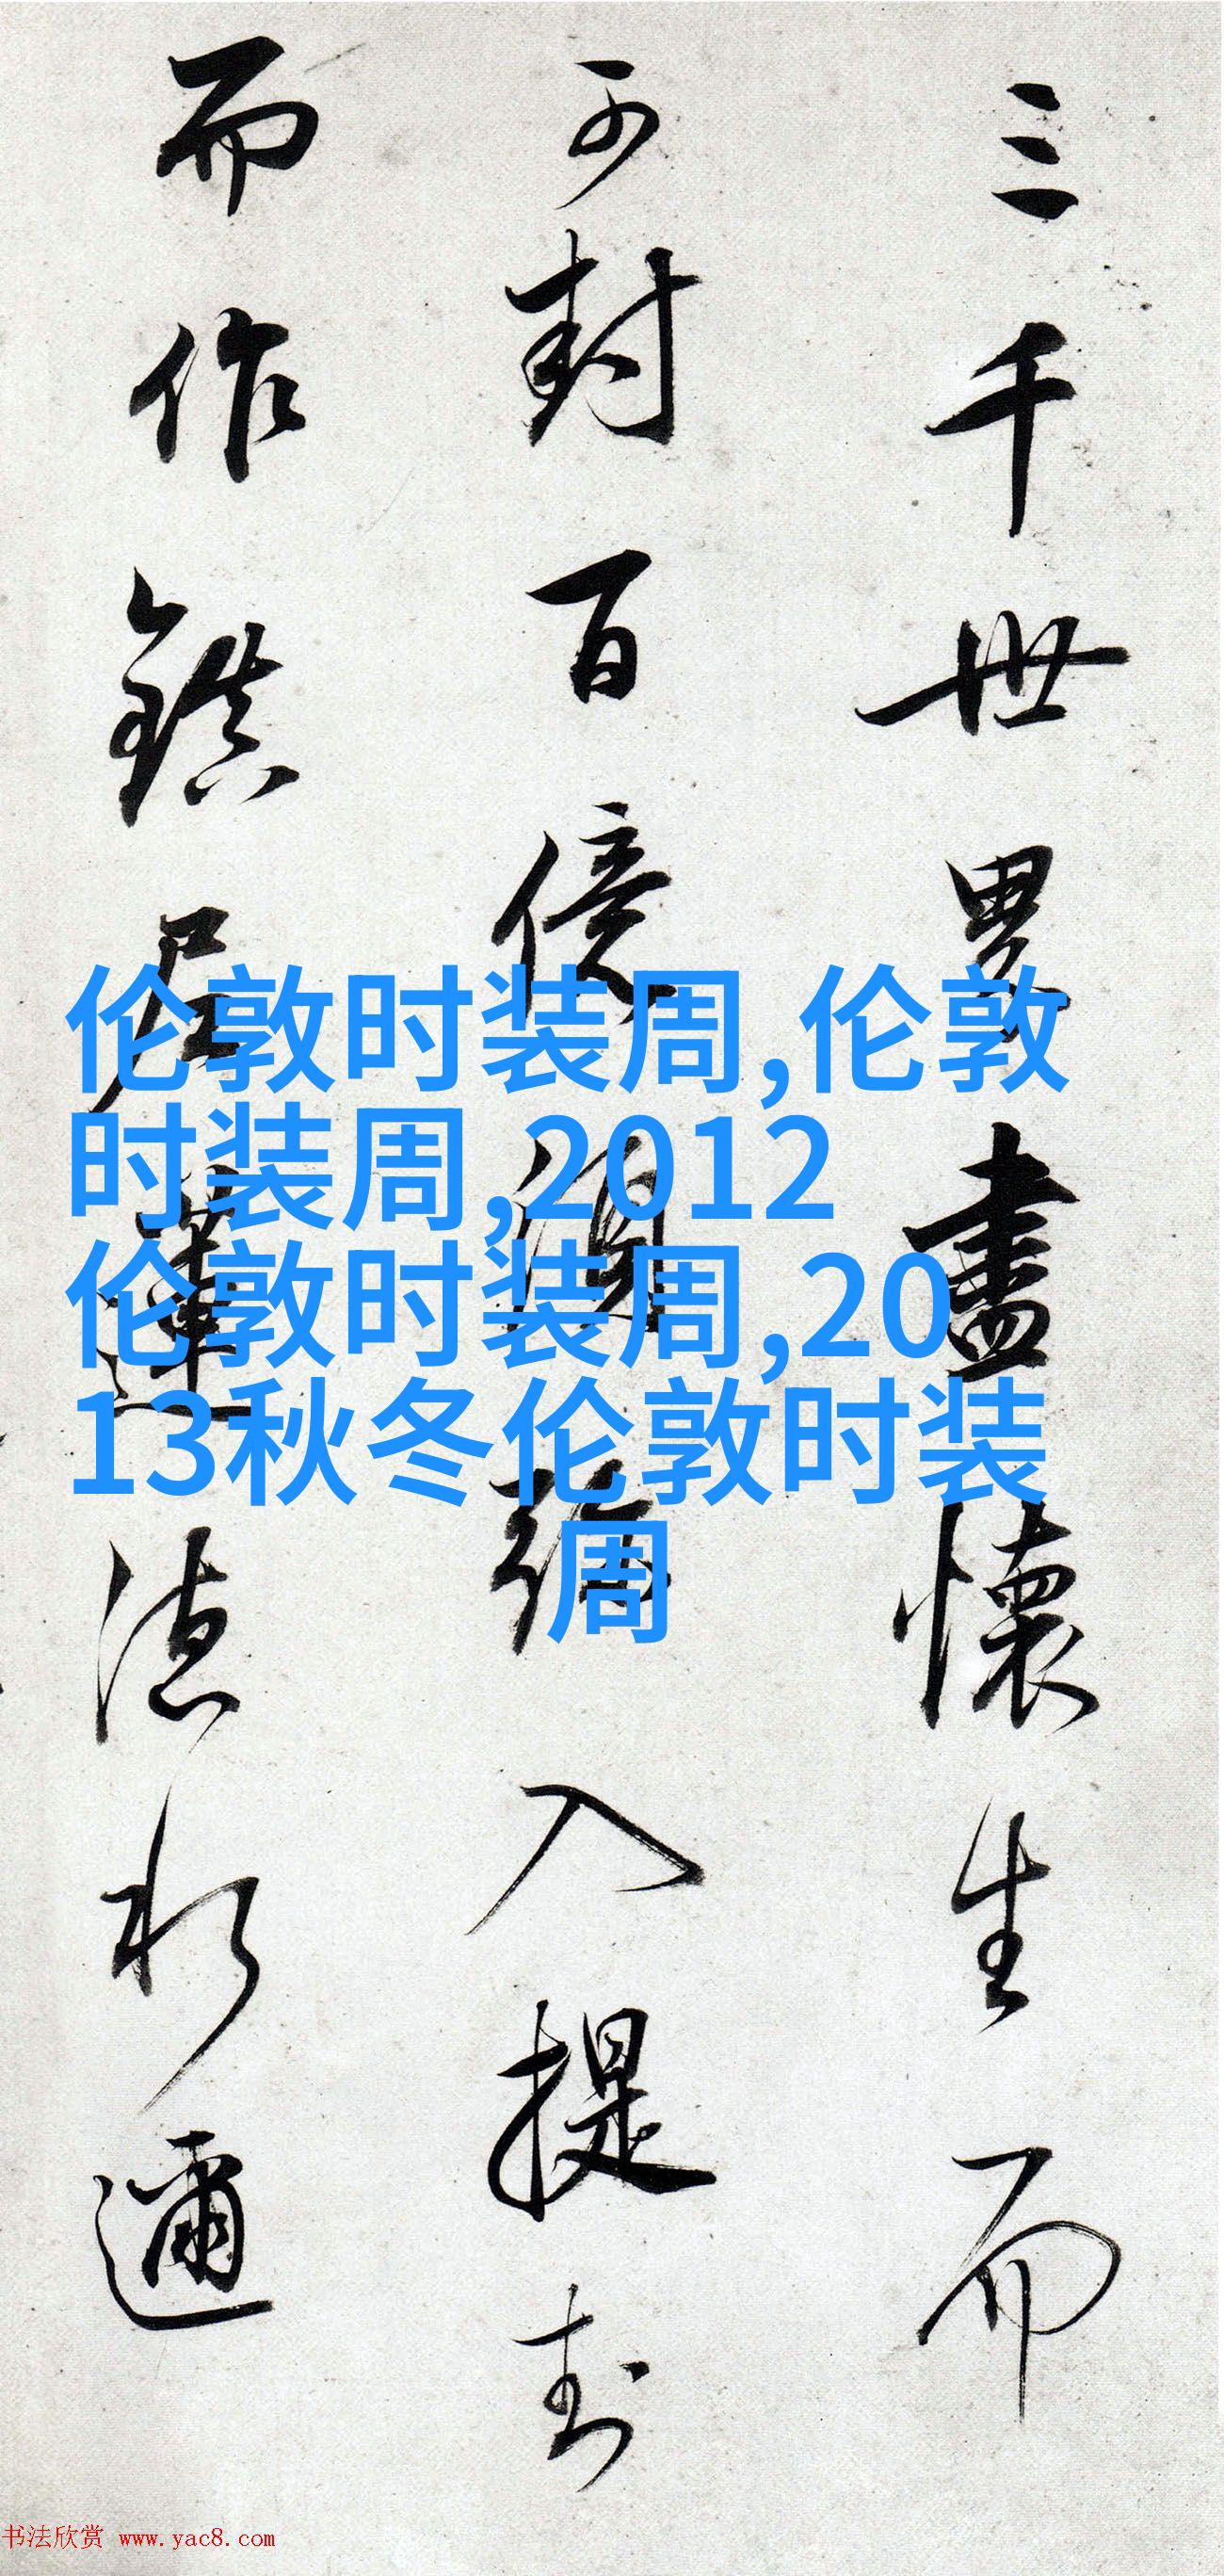 三千世界盡懷生而
可封百億須弥入提封
而作鎮居蓮
德水邇
伦敦时装周,伦敦
时装周,2012
伦敦时装周,20
13秋冬伦敦时装
周
书法欣赏 www.yac8.com